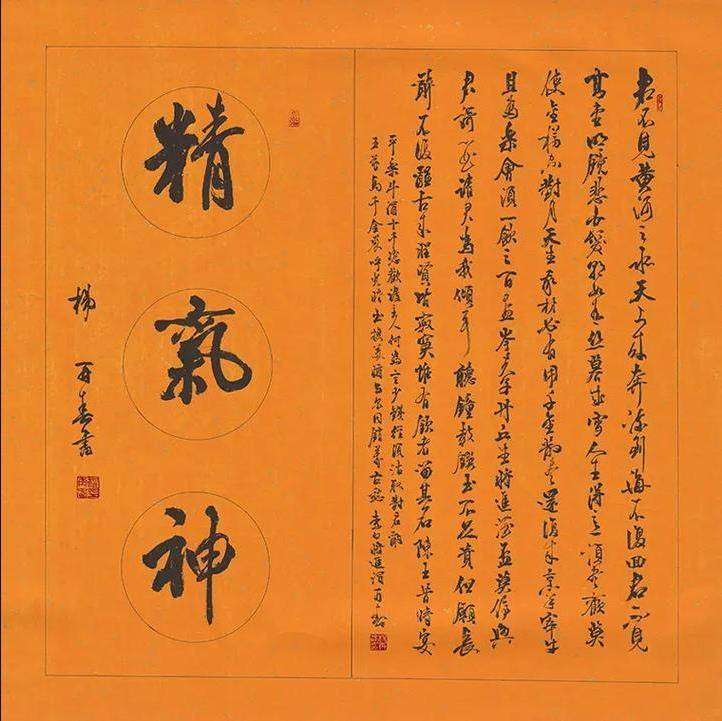 君不見黄河之水天上来奔流到海不復回君不見
高堂明鏡悲白髮朝如青丝暮成雪人生得意須盡歡莫
使金樽空對月天生我材必有用千金散盡還復来烹羊宰牛
且為樂會須一飲三百盃岑夫子丹丘生將進酒盃莫停與
君歌一曲請君為我傾耳聽鐘鼓饌玉不足貴但願長
醉不復醒古来聖賢皆寂寞惟有飲者留其名陳王昔時宴
平樂斗酒十千恣歡謔主人何為言少錢徑須沽取對君酌
五花馬千金裘呼兒將出換美酒與爾同銷萬古愁 李白將進酒
精
氣
神
楊再春書